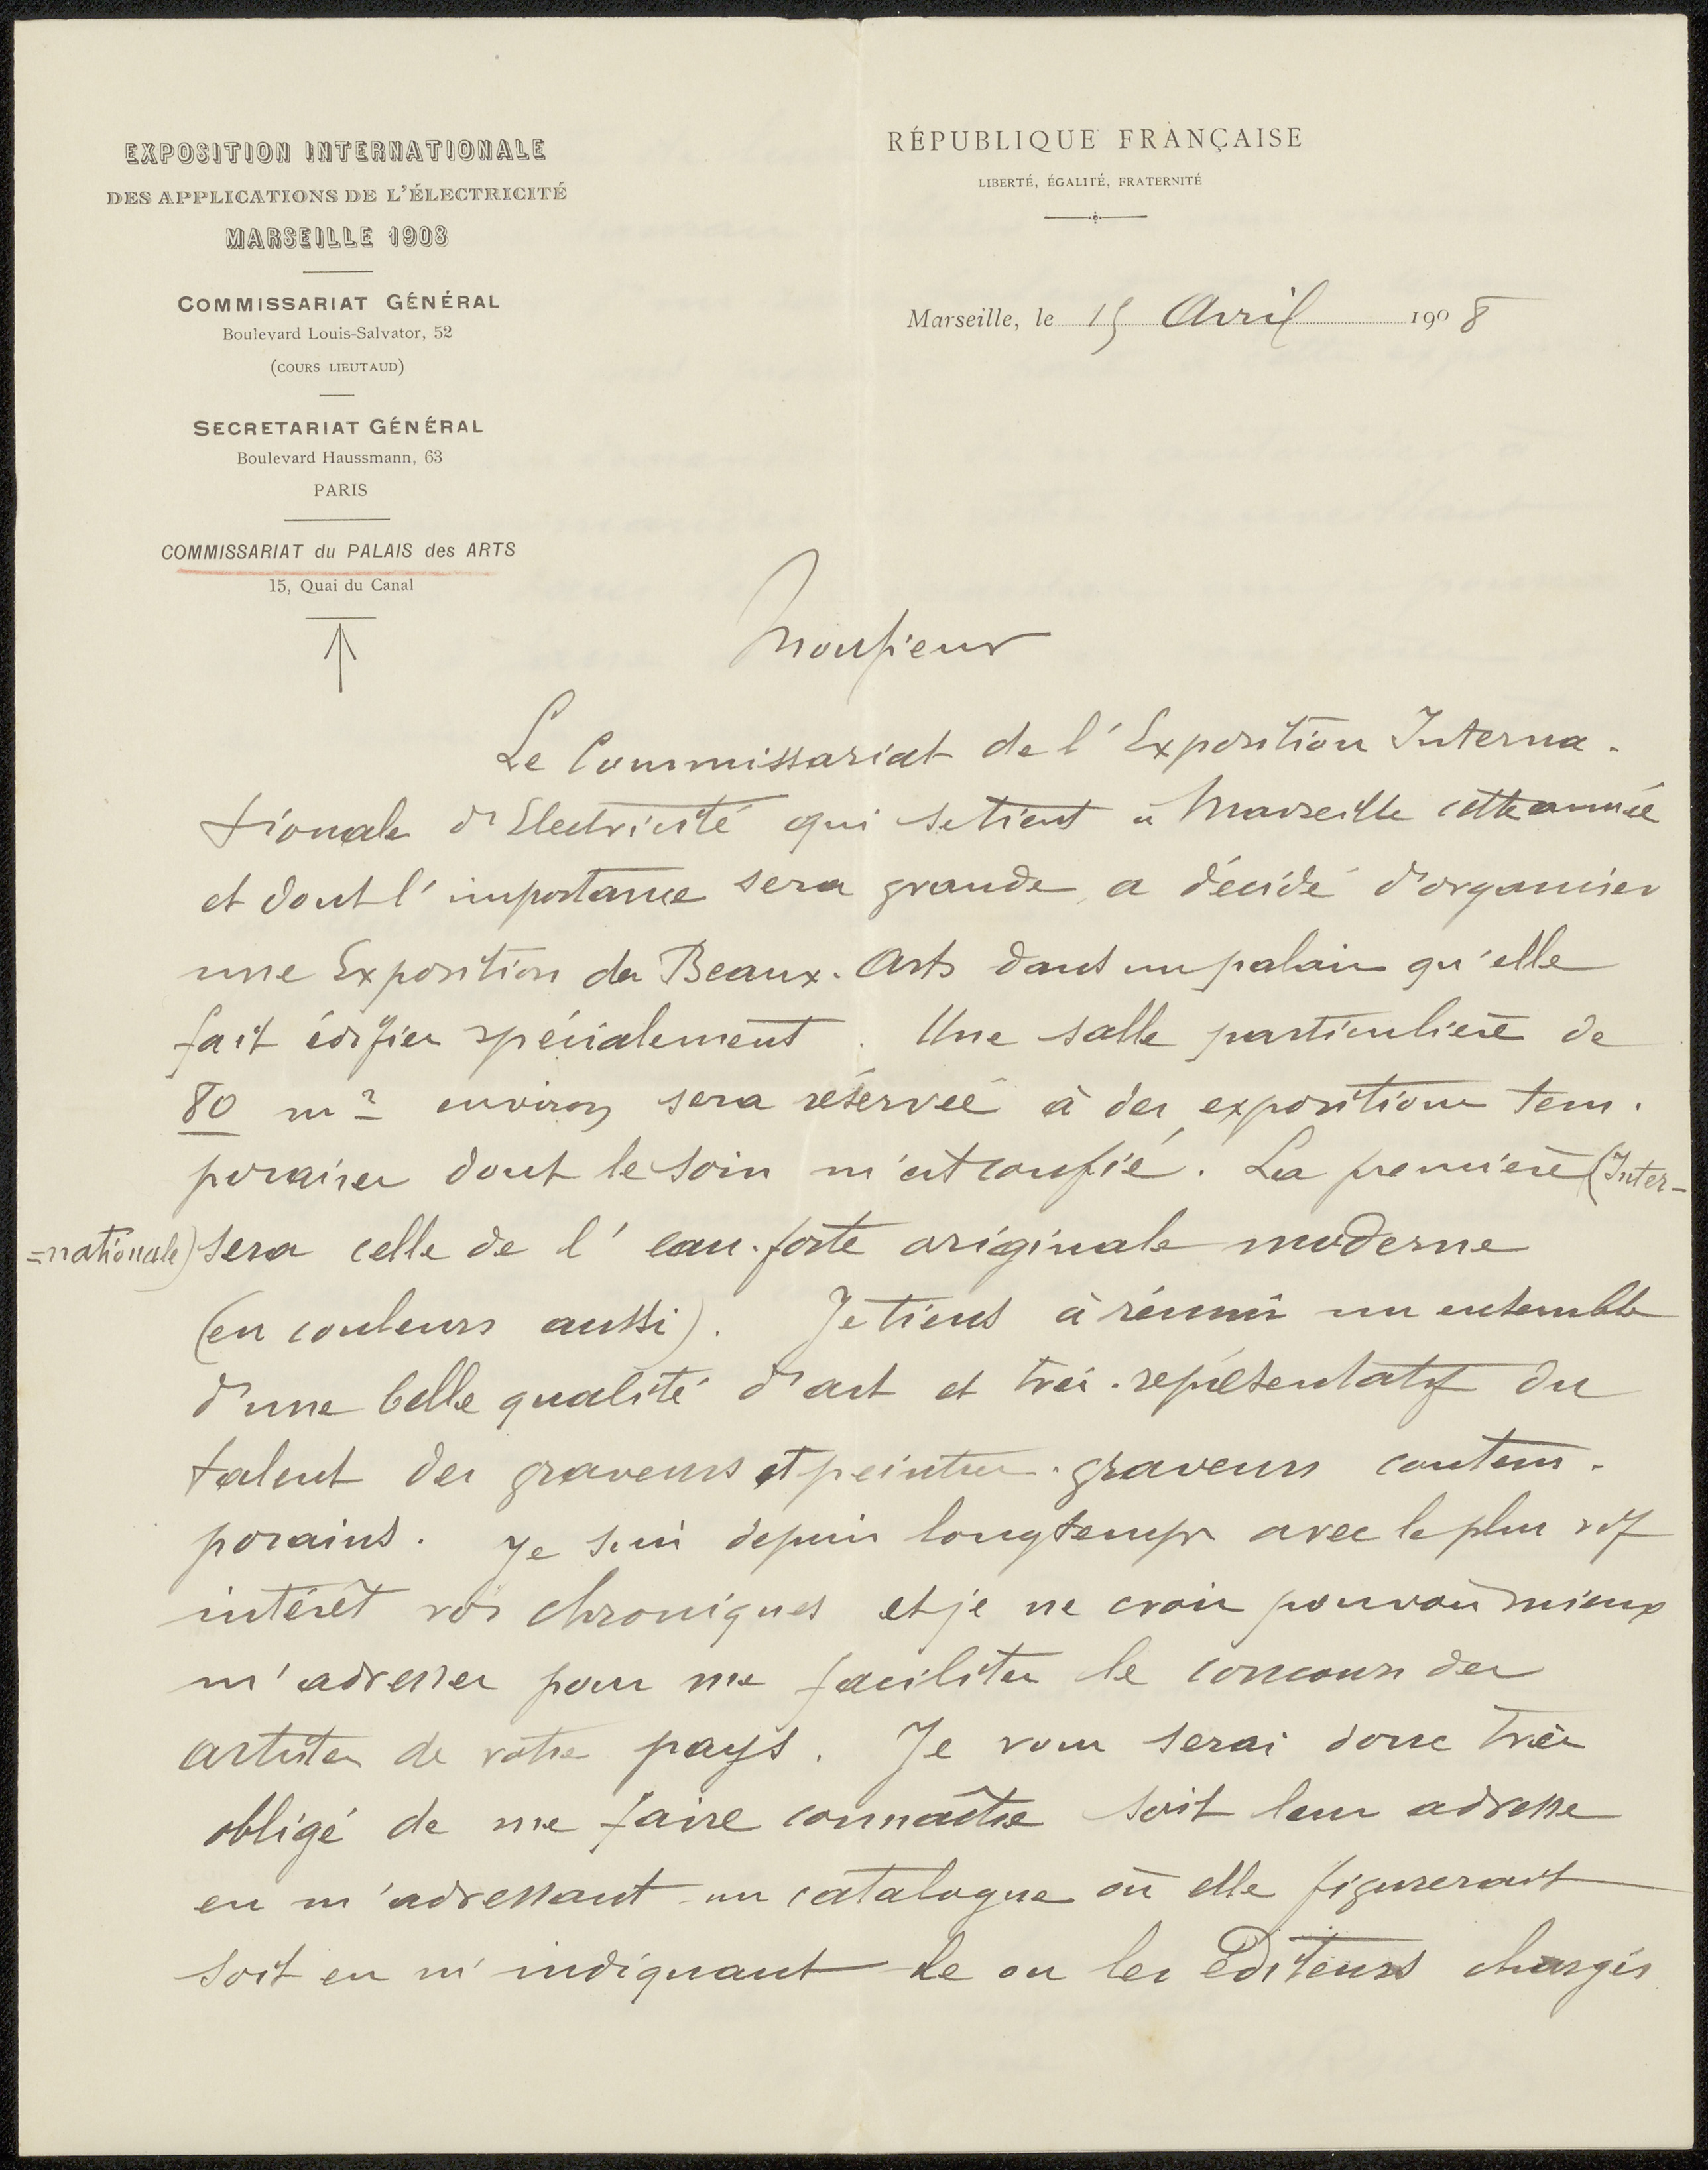 EXPOSITION INTERNATIONALE
DES APPLICATIONS DE L'ÉLECTRICITÉ
MARSEILLE 1908
COMMISSARIAT GÉNÉRAL
Boulevard Louis-Salvator, 52
(COURS LIEUTAUD)
SECRETARIAT GÉNÉRAL
Boulevard Haussmann, 63
PARIS
COMMISSARIAT du PALAIS des ARTS
15, Quai du Canal
RÉPUBLIQUE FRANÇAISE
LIBERTÉ, ÉGALITÉ, FRATERNITÉ
Marseille, le 15 Avril 1908
Monsieur
Le Commissariat de l'Exposition Interna-
tionale d'Electricité qui se tient à Marseille cette année
et dont l'importance sera grande, a décidé d'organiser
une Exposition de Beaux-Arts dans un palais qu'elle
fait édifier spécialement. Une salle particulière de
80 m2 environ sera réservée à des expositions tem-
poraires dont le soin m'est confié. La première (Inter-
=nationale) sera celle de l'eau-forte originale moderne
(en couleurs aussi). Je tiens à réunir un ensemble
d'une belle qualité d'art et très-représentatif du
talent des graveurs et peintres-graveurs contem-
porains. Je suis depuis longtemps avec le plus vif
intérêt vos chroniques et je ne crois pouvoir mieux
m'adresser pour me faciliter le concours des
artistes de votre pays. Je vous serai donc très
obligé de me faire connaître soit leur adresse
en m'adressant un catalogue où elle figurerait
soit en m'indiquant le ou les Editeurs chargés